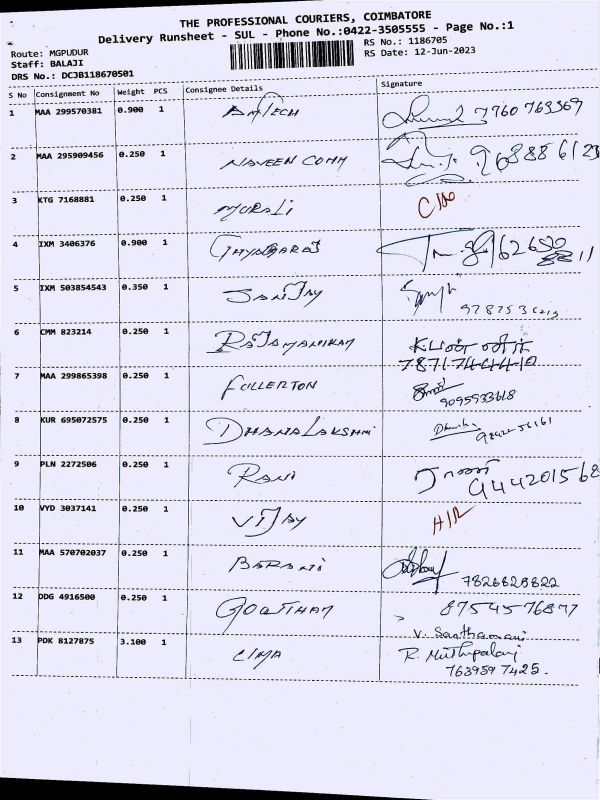 THE PROFESSIONAL COURIERS, COIMBATORE
Delivery Runsheet - SUL - Phone No.:0422-3505555 - Page No.:1
Route: MGPUDUR
RS No.: 1186705
Staff: BALAJI
RS Date: 12-Jun-2023
DRS No.: DCJB118670501
S No Consignment No Weight PCS Consignee Details Signature
1 MAA 299570381 0.900 1 AMTECH 7760763369
2 MAA 295909456 0.250 1 NAVEEN COMM
3 KTG 7168881 0.250 1 MURALI
4 IXM 3406376 0.900 1
5 IXM 503854543 0.350 1 SANJAY
6 CMM 823214 0.250 1 RAJAMANIKAM
7871744410
7 MAA 299865398 0.250 1 FULLERTON
9095933618
8 KUR 695072575 0.250 1 DHANALAKSHMI
9 PLN 2272506 0.250 1 RANI
944201568
10 VYD 3037141 0.250 1 VIJAY
11 MAA 570702037 0.250 1 BARANI
7826828822
12 DDG 4916500 0.250 1 GOWTHAM 8754576877
V. Santhamani
13 PDK 8127875 3.100 1 CIMA R. Muthupalani
7639597425.